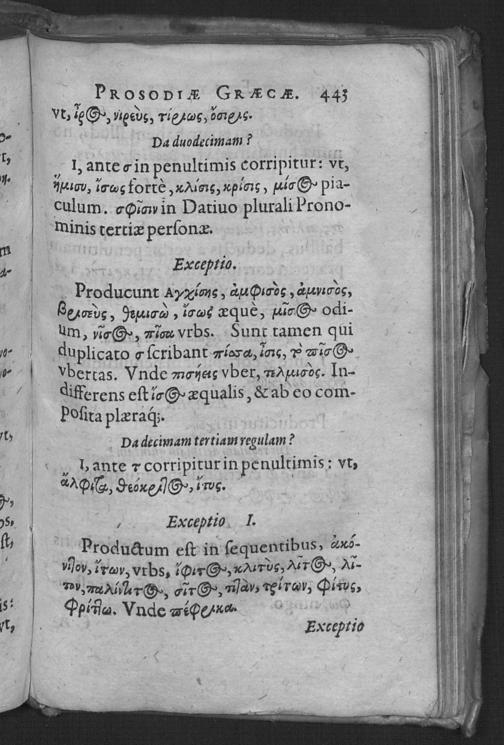 PROSODIÆ GRÆCÆ. 443
vt, ἶρος, νιρεὺς, τίρυως, ὄσιρις.
Da duodecimam?
I, ante σ in penultimis corripitur: vt,
ἥμισυ, ἴσως fortè, κλίσις, κρίσις, μίσος pia-
culum. σφίσιν in Datiuo plurali Prono-
minis tertiæ personæ.
Exceptio.
Producunt Αγχίσης, ἀμφισὸς, ἀμνισὸς,
βρισεὺς, θεμισὼ, ἴσως æquè, μῖσος odi-
um, νῖσος, πῖσα vrbs. Sunt tamen qui
duplicato σ scribant πίσσα, ἶσις, τὸ πῖσος
vbertas. Vnde πισήεις vber, τελμισὸς. In-
differens est ἶσος æqualis, & ab eo com-
posita pleraq;.
Da decimam tertiam regulam?
I, ante τ corripitur in penultimis: vt,
ἄλφιτα, θεόκριτος, ἴτυς.
Exceptio I.
Productum est in sequentibus, ἀκό-
νιτον, ἴτων, vrbs, ἴφιτος, κλιτὺς, λῖτος, λί-
τον, παλίντιτος, σῖτος, τιτὰν, τρίτων, φίτυς,
φρίττω. Vnde πέφρικα.
Exceptio